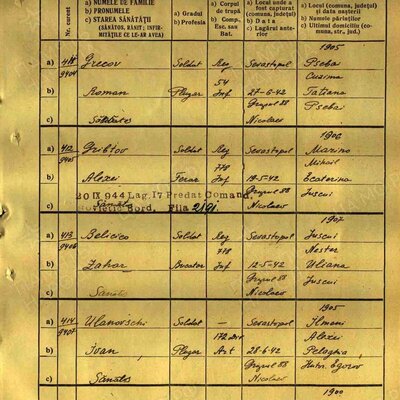 Nr. curent
a) NUMELE DE FAMILIE
b) PRONUMELE
c) STAREA SĂNĂTĂȚII
(SĂNĂTOS, RĂNIT; INFIR-
MITĂȚILE CE LE-AR AVEA)
a) Gradul
b) Profesia
a) Corpul
de trupă
b) Comp.
Esc. sau
Bat.
a) Locul unde a
fost capturat
(comuna, județul)
b) Data
c) Lagăre ante-
rior
(comuna, județul)
și data nașterii
b) Numele părinților
c) Ultimul domiciliu (co-
muna, str., jud.)
1905
a) 411 Grecov Soldat Reg Sevastopol Psebai
9404 54 Cuzima
b) Roman Plugar Inf 27-6-42 Tatiana
Grupul 88 Psebai
c) Sănătos Nicolaev
1906
a) 412 Gribtov Soldat Reg Sevastopol Marino
9405 778 Mihail
b) Alexei Ferar Inf 19-5-42 Ecaterina
20 IX 944 Lag. 17 Predat Comand. Grupul 88 Juscui
c) Sănăt Sovietic Bord. Fila 2191 Nicolaev
1907
a) 413 Belicico Soldat Reg Sevastopol Juscui
9406 778 Nester
b) Zahar Bucator Inf 12-5-42 Uliana
Grupul 88 Juscui
c) Sănătos Nicolaev
1905
a) 414 Ulanovschi Soldat — Sevastopol Ilmeni
9407 172 div Alexei
b) Ivan Plugar Art 28-6-42 Pelaghia
Grupul 88 Hutor. Egorov
c) Sănătos Nicolaev
1900